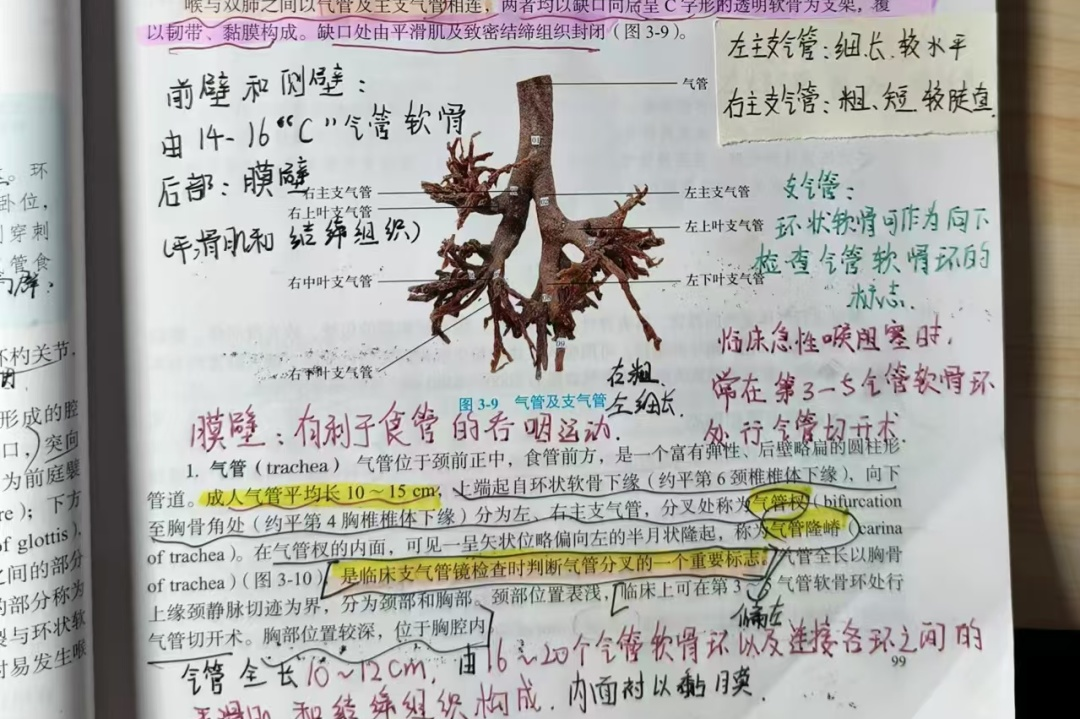 喉与双肺之间以气管及主支气管相连，两者均以缺口向后呈 C 字形的透明软骨为支架，覆
以韧带、黏膜构成。缺口处由平滑肌及致密结缔组织封闭（图 3-9）。
左主支气管：细长、较水平
右主支气管：粗、短 较陡直
前壁和侧壁：
由14-16“C”气管软骨
后部：膜壁
(平滑肌和 结缔组织)
气管
右主支气管
右上叶支气管
右中叶支气管
右下叶支气管
左主支气管
左上叶支气管
左下叶支气管
支气管：
环状软骨可作为向下
检查气管软骨环的
标志.
临床急性喉阻塞时，
常在第3-5气管软骨环
处行气管切开术.
右粗.
左细长.
图 3-9 气管及支气管
膜壁：有利于食管的吞咽运动.
1. 气管（trachea） 气管位于颈前正中，食管前方，是一个富有弹性、后壁略扁的圆柱形
管道。成人气管平均长 10～15 cm，上端起自环状软骨下缘（约平第 6 颈椎椎体下缘），向下
至胸骨角处（约平第 4 胸椎椎体下缘）分为左、右主支气管，分叉处称为气管杈（bifurcation
of trachea）。在气管杈的内面，可见一呈矢状位略偏向左的半月状隆起，称为气管隆嵴（carina
of trachea）（图 3-10），是临床支气管镜检查时判断气管分叉的一个重要标志。气管全长以胸骨
上缘颈静脉切迹为界，分为颈部和胸部。颈部位置表浅，临床上可在第 3～ 气管软骨环处行
气管切开术。胸部位置较深，位于胸腔内
偏左
99
气管全长10～12cm，由16～20个气管软骨环以及连接各环之间的
平滑肌和结缔组织构成.内面衬以黏膜.
。环
卧位，
穿刺
管食
杓关节，
形成的腔
口，突向
为前庭襞
re）；下方
of glottis），
之间的部分
的部分称为
裂与环状软
时易发生喉